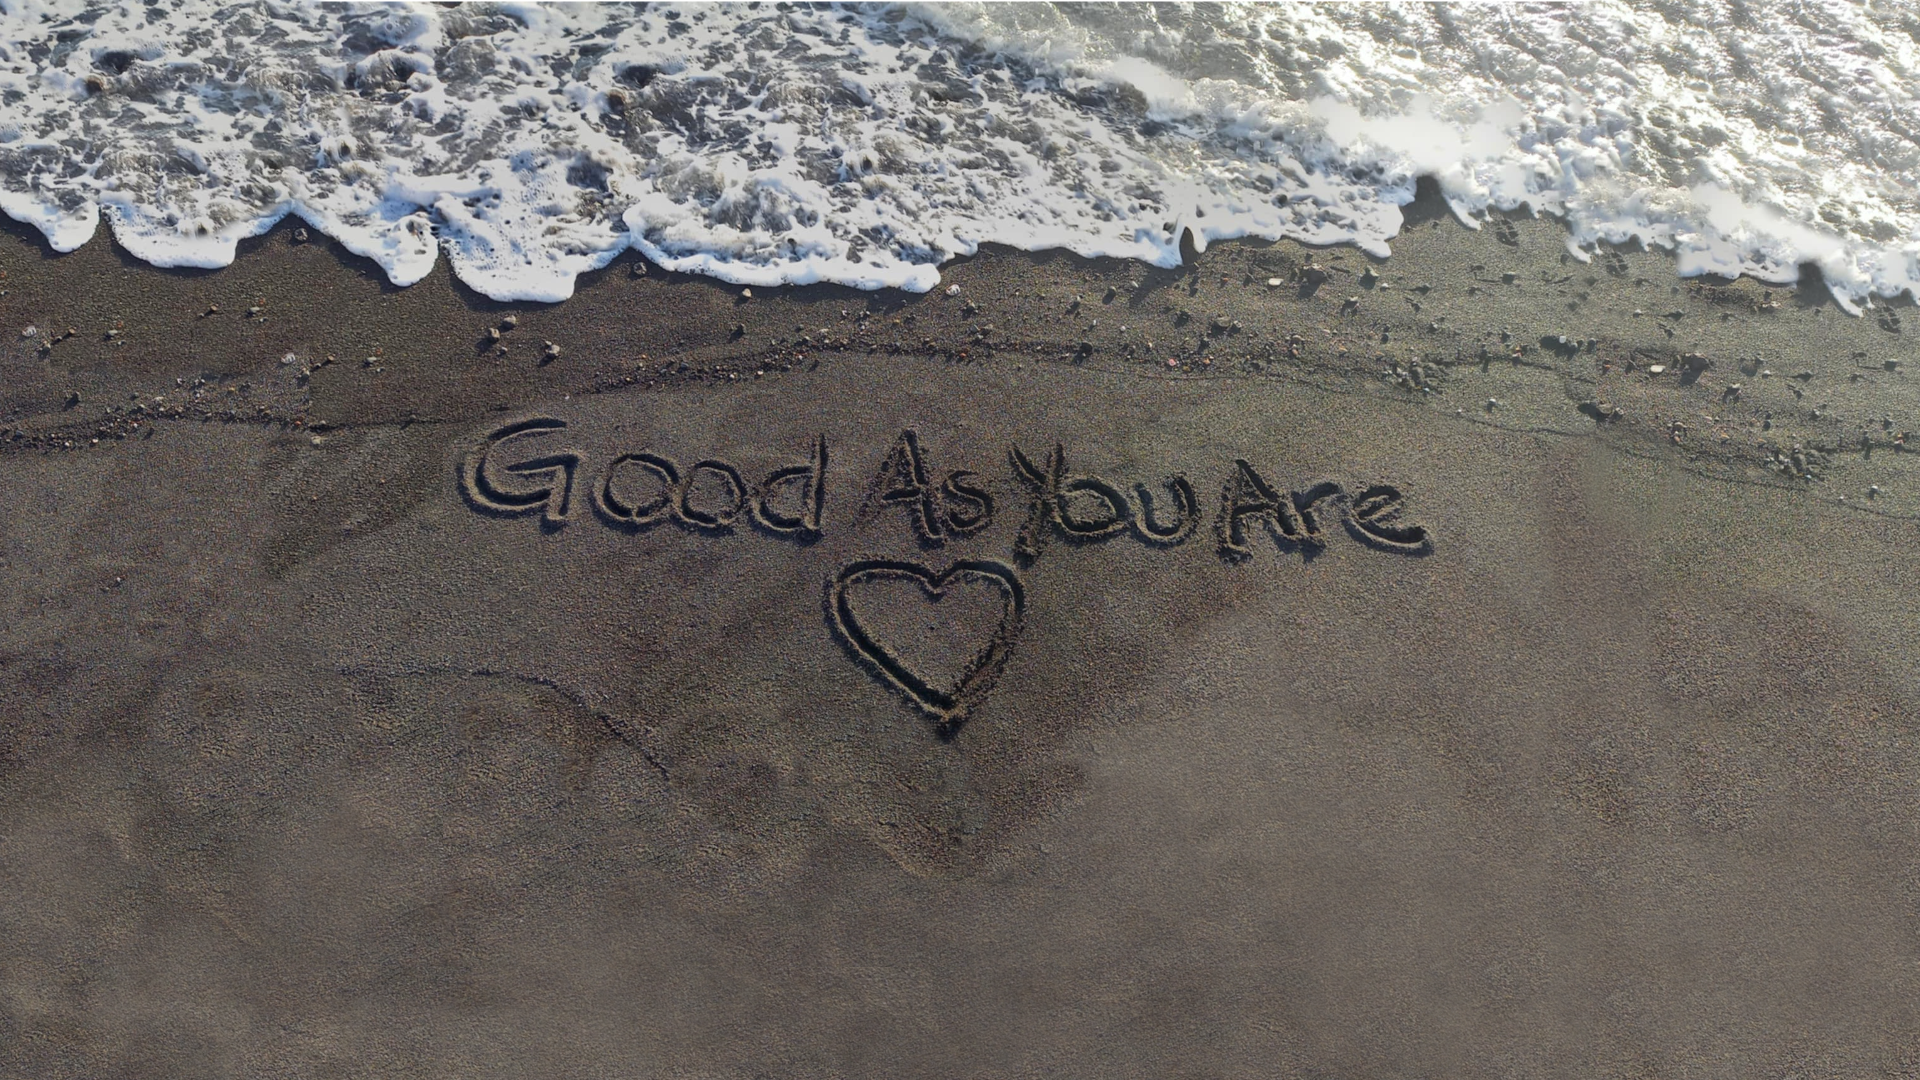 Good As You Are